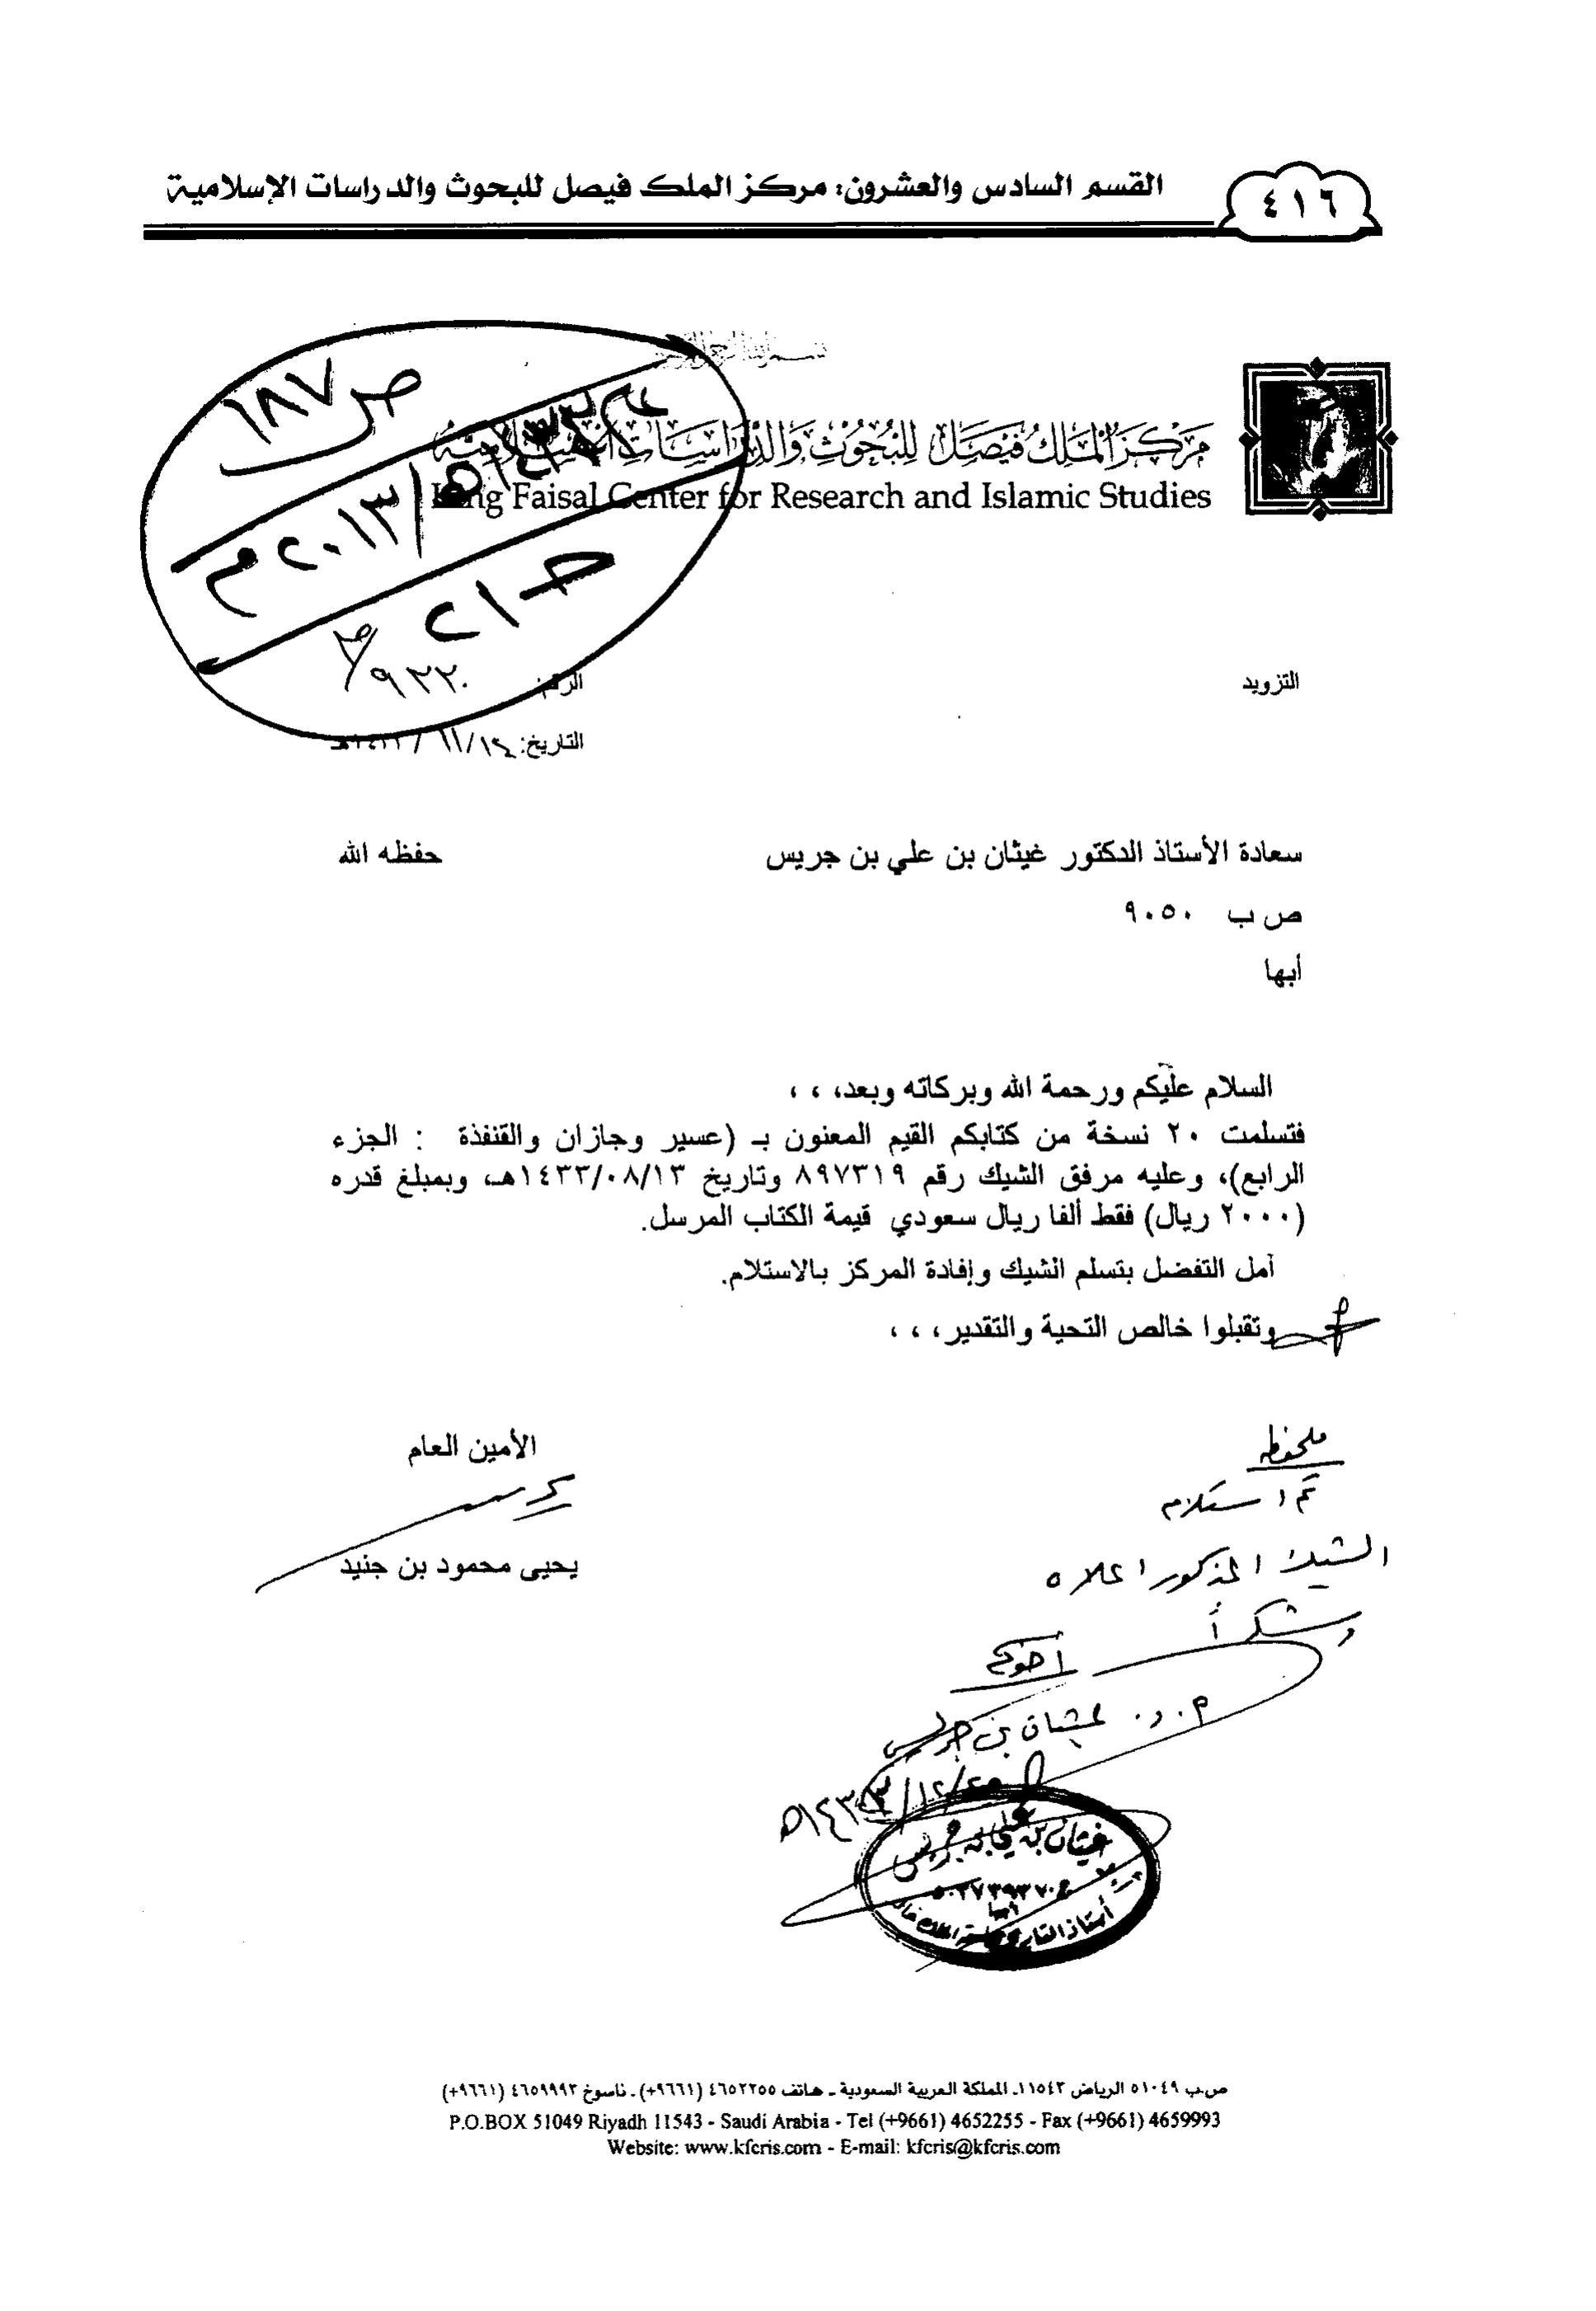 ٤١٦
القسم السادس والعشرون: مركز الملك فيصل للبحوث والدراسات الإسلامية
مركز الملك فيصل للبحوث والدراسات الإسلامية
King Faisal Center for Research and Islamic Studies
ص ١٨٧
٢٠١٣م
ح ٢١
التزويد
الرقم: ٩٣٣٠/ص
التاريخ: ١١/١٤/
سعادة الأستاذ الدكتور غيثان بن علي بن جريس حفظه الله
ص ب ٩٠٥٠
أبها
السلام عليكم ورحمة الله وبركاته وبعد، ، ،
فتسلمت ٢٠ نسخة من كتابكم القيم المعنون بـ (عسير وجازان والقنفذة : الجزء
الرابع)، وعليه مرفق الشيك رقم ٨٩٧٣١٩ وتاريخ ١٤٣٣/٠٨/١٣هـ، وبمبلغ قدره
(٢٠٠٠ ريال) فقط ألفا ريال سعودي قيمة الكتاب المرسل.
آمل التفضل بتسلم الشيك وإفادة المركز بالاستلام.
وتقبلوا خالص التحية والتقدير، ، ،
الأمين العام
يحيى محمود بن جنيد
ملحوظه
تم استلام
الشيك المذكور اعلاه
وشكراً
أخوكم
أ. د. غيثان بن جريس
غيثان بن علي بن جريس
أبها
أستاذ التاريخ بجامعة الملك خالد
ص.ب ٥١٠٤٩ الرياض ١١٥٤٣ـ المملكة العربية السعودية ـ هاتف ٤٦٥٢٢٥٥ (٩٦٦١+) ـ ناسوخ ٤٦٥٩٩٩٣ (٩٦٦١+)
P.O.BOX 51049 Riyadh 11543 - Saudi Arabia - Tel (+9661) 4652255 - Fax (+9661) 4659993
Website: www.kfcris.com - E-mail: kfcris@kfcris.com